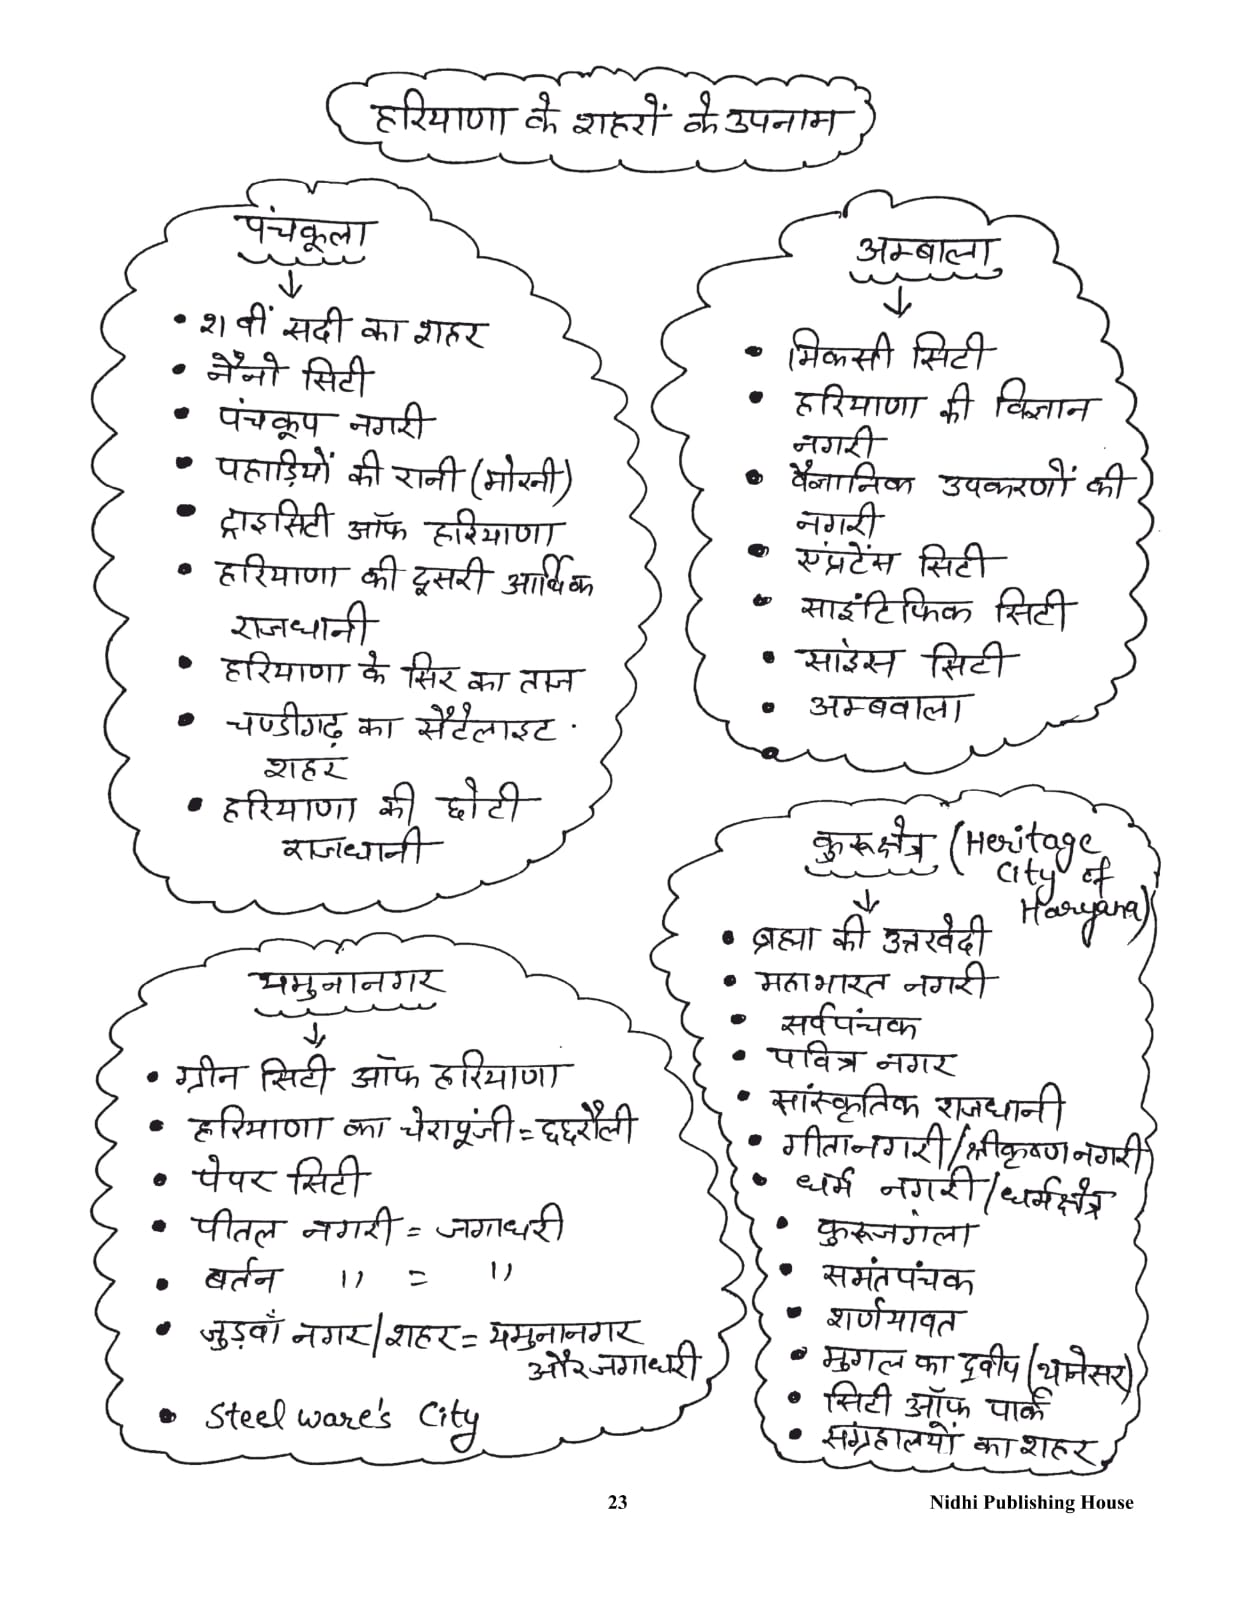 हरियाणा के शहरों के उपनाम
पंचकूला
• २१ वीं सदी का शहर
• नैनो सिटी
• पंचकूप नगरी
• पहाड़ियों की रानी (मोरनी)
• ट्राइसिटी ऑफ हरियाणा
• हरियाणा की दूसरी आर्थिक
राजधानी
• हरियाणा के सिर का ताज
• चण्डीगढ़ का सैटेलाइट
शहर
• हरियाणा की छोटी
राजधानी
अम्बाला
• मिक्सी सिटी
• हरियाणा की विज्ञान
नगरी
• वैज्ञानिक उपकरणों की
नगरी
• सिटी
• साइंटिफिक सिटी
• साइंस सिटी
• अम्बवाला
यमुनानगर
• ग्रीन सिटी ऑफ हरियाणा
• हरियाणा का चेरापूंजी = दद्दरौली
• पेपर सिटी
• पीतल नगरी = जगाधरी
• बर्तन " = "
• जुड़वाँ नगर/शहर = यमुनानगर
और जगाधरी
• Steel ware's City
कुरूक्षेत्र (Heritage
City of
Haryana)
• ब्रह्मा की उत्तरवेदी
• महाभारत नगरी
• सर्वपंचक
• पवित्र नगर
• सांस्कृतिक राजधानी
• गीतानगरी/श्रीकृष्ण नगरी
• धर्म नगरी/धर्मक्षेत्र
• कुरूजंगला
• समंतपंचक
• शर्णयावत
• मुगल का द्रवीप (थानेसर)
• सिटी ऑफ पार्क
• संग्रहालयों का शहर
23
Nidhi Publishing House